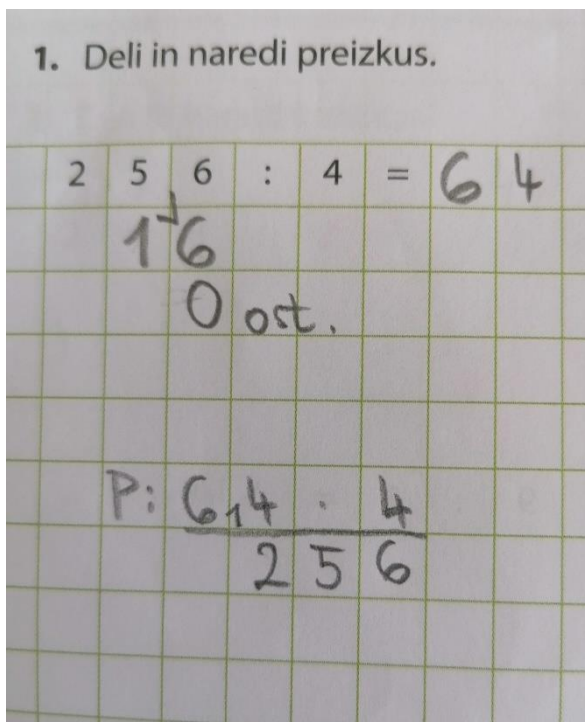 1. Deli in naredi preizkus.
2 5 6 : 4 = 6 4
1 6
0 ost.
P: 6 1 4 · 4
2 5 6